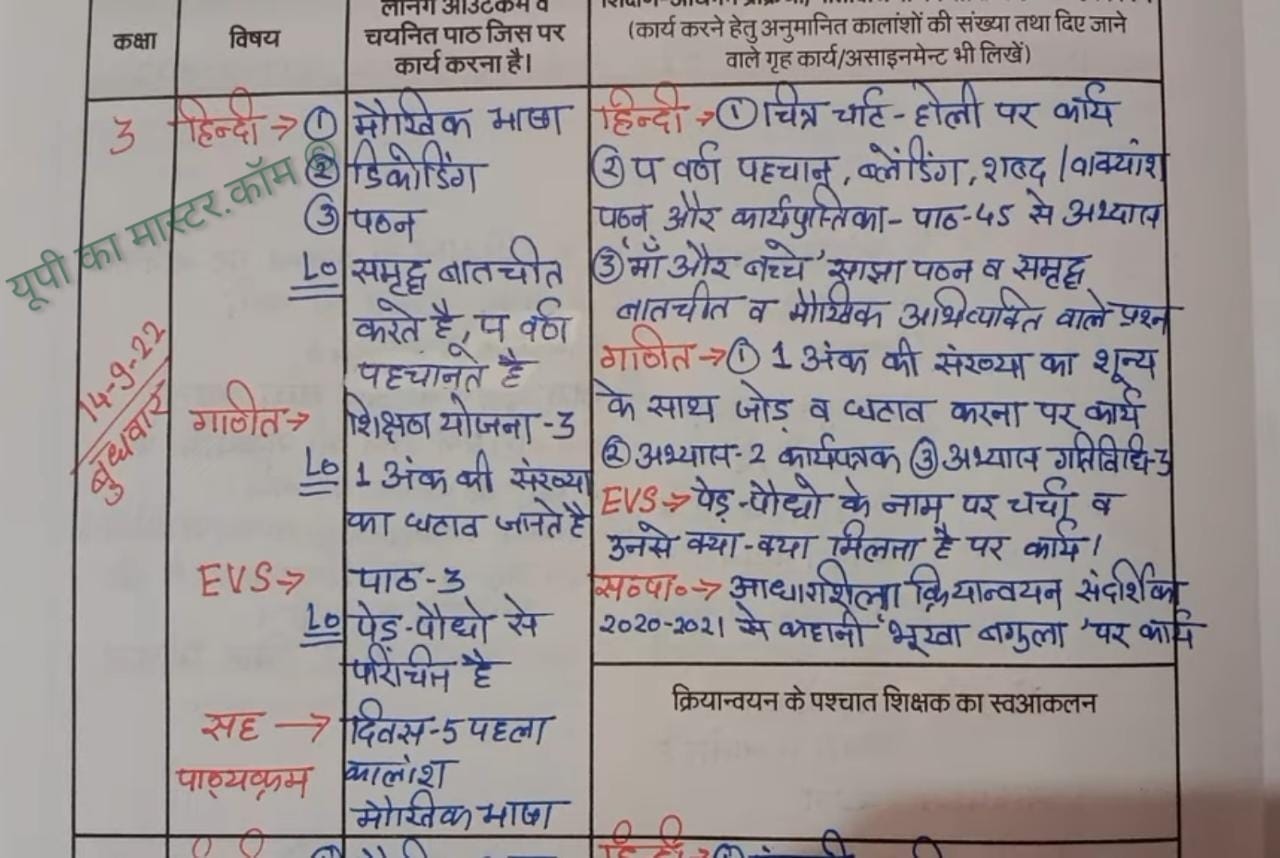 कक्षा
विषय
लर्निंग आउटकम व
चयनित पाठ जिस पर
कार्य करना है।
(कार्य करने हेतु अनुमानित कालांशों की संख्या तथा दिए जाने
वाले गृह कार्य/असाइनमेंट भी लिखें)
3
14-9-22
बुधवार
हिन्दी → ① मौखिक भाषा
② डिकोडिंग
③ पठन
LO समृद्ध बातचीत
करते है, प वर्ण
पहचानते है
गणित → शिक्षण योजना -3
LO 1 अंक की संख्या
का घटाव जानते है
EVS → पाठ-3
LO पेड़-पौधो से
परिचित है
सह → दिवस-5 पहला
पाठ्यक्रम कालांश
मौखिक भाषा
हिन्दी → ① चित्र चार्ट - होली पर कार्य
② प वर्ण पहचान, ब्लेंडिंग, शब्द / वाक्यांश
पठन और कार्यपुस्तिका - पाठ-45 से अभ्यास
③ 'माँ और बच्चे' साझा पठन व समृद्ध
बातचीत व मौखिक अभिव्यक्ति वाले प्रश्न
गणित → ① 1 अंक की संख्या का शून्य
के साथ जोड़ व घटाव करना पर कार्य
② अभ्यास-2 कार्यपत्रक ③ अभ्यास गतिविधि-3
EVS → पेड़-पौधो के नाम पर चर्चा व
उनसे क्या-क्या मिलता है पर कार्य।
स०पा० → आधारशिला क्रियान्वयन संदर्शिका
2020-2021 से कहानी 'भूखा बगुला' पर कार्य
क्रियान्वयन के पश्चात शिक्षक का स्वआंकलन
यूपी का मास्टर.कॉम